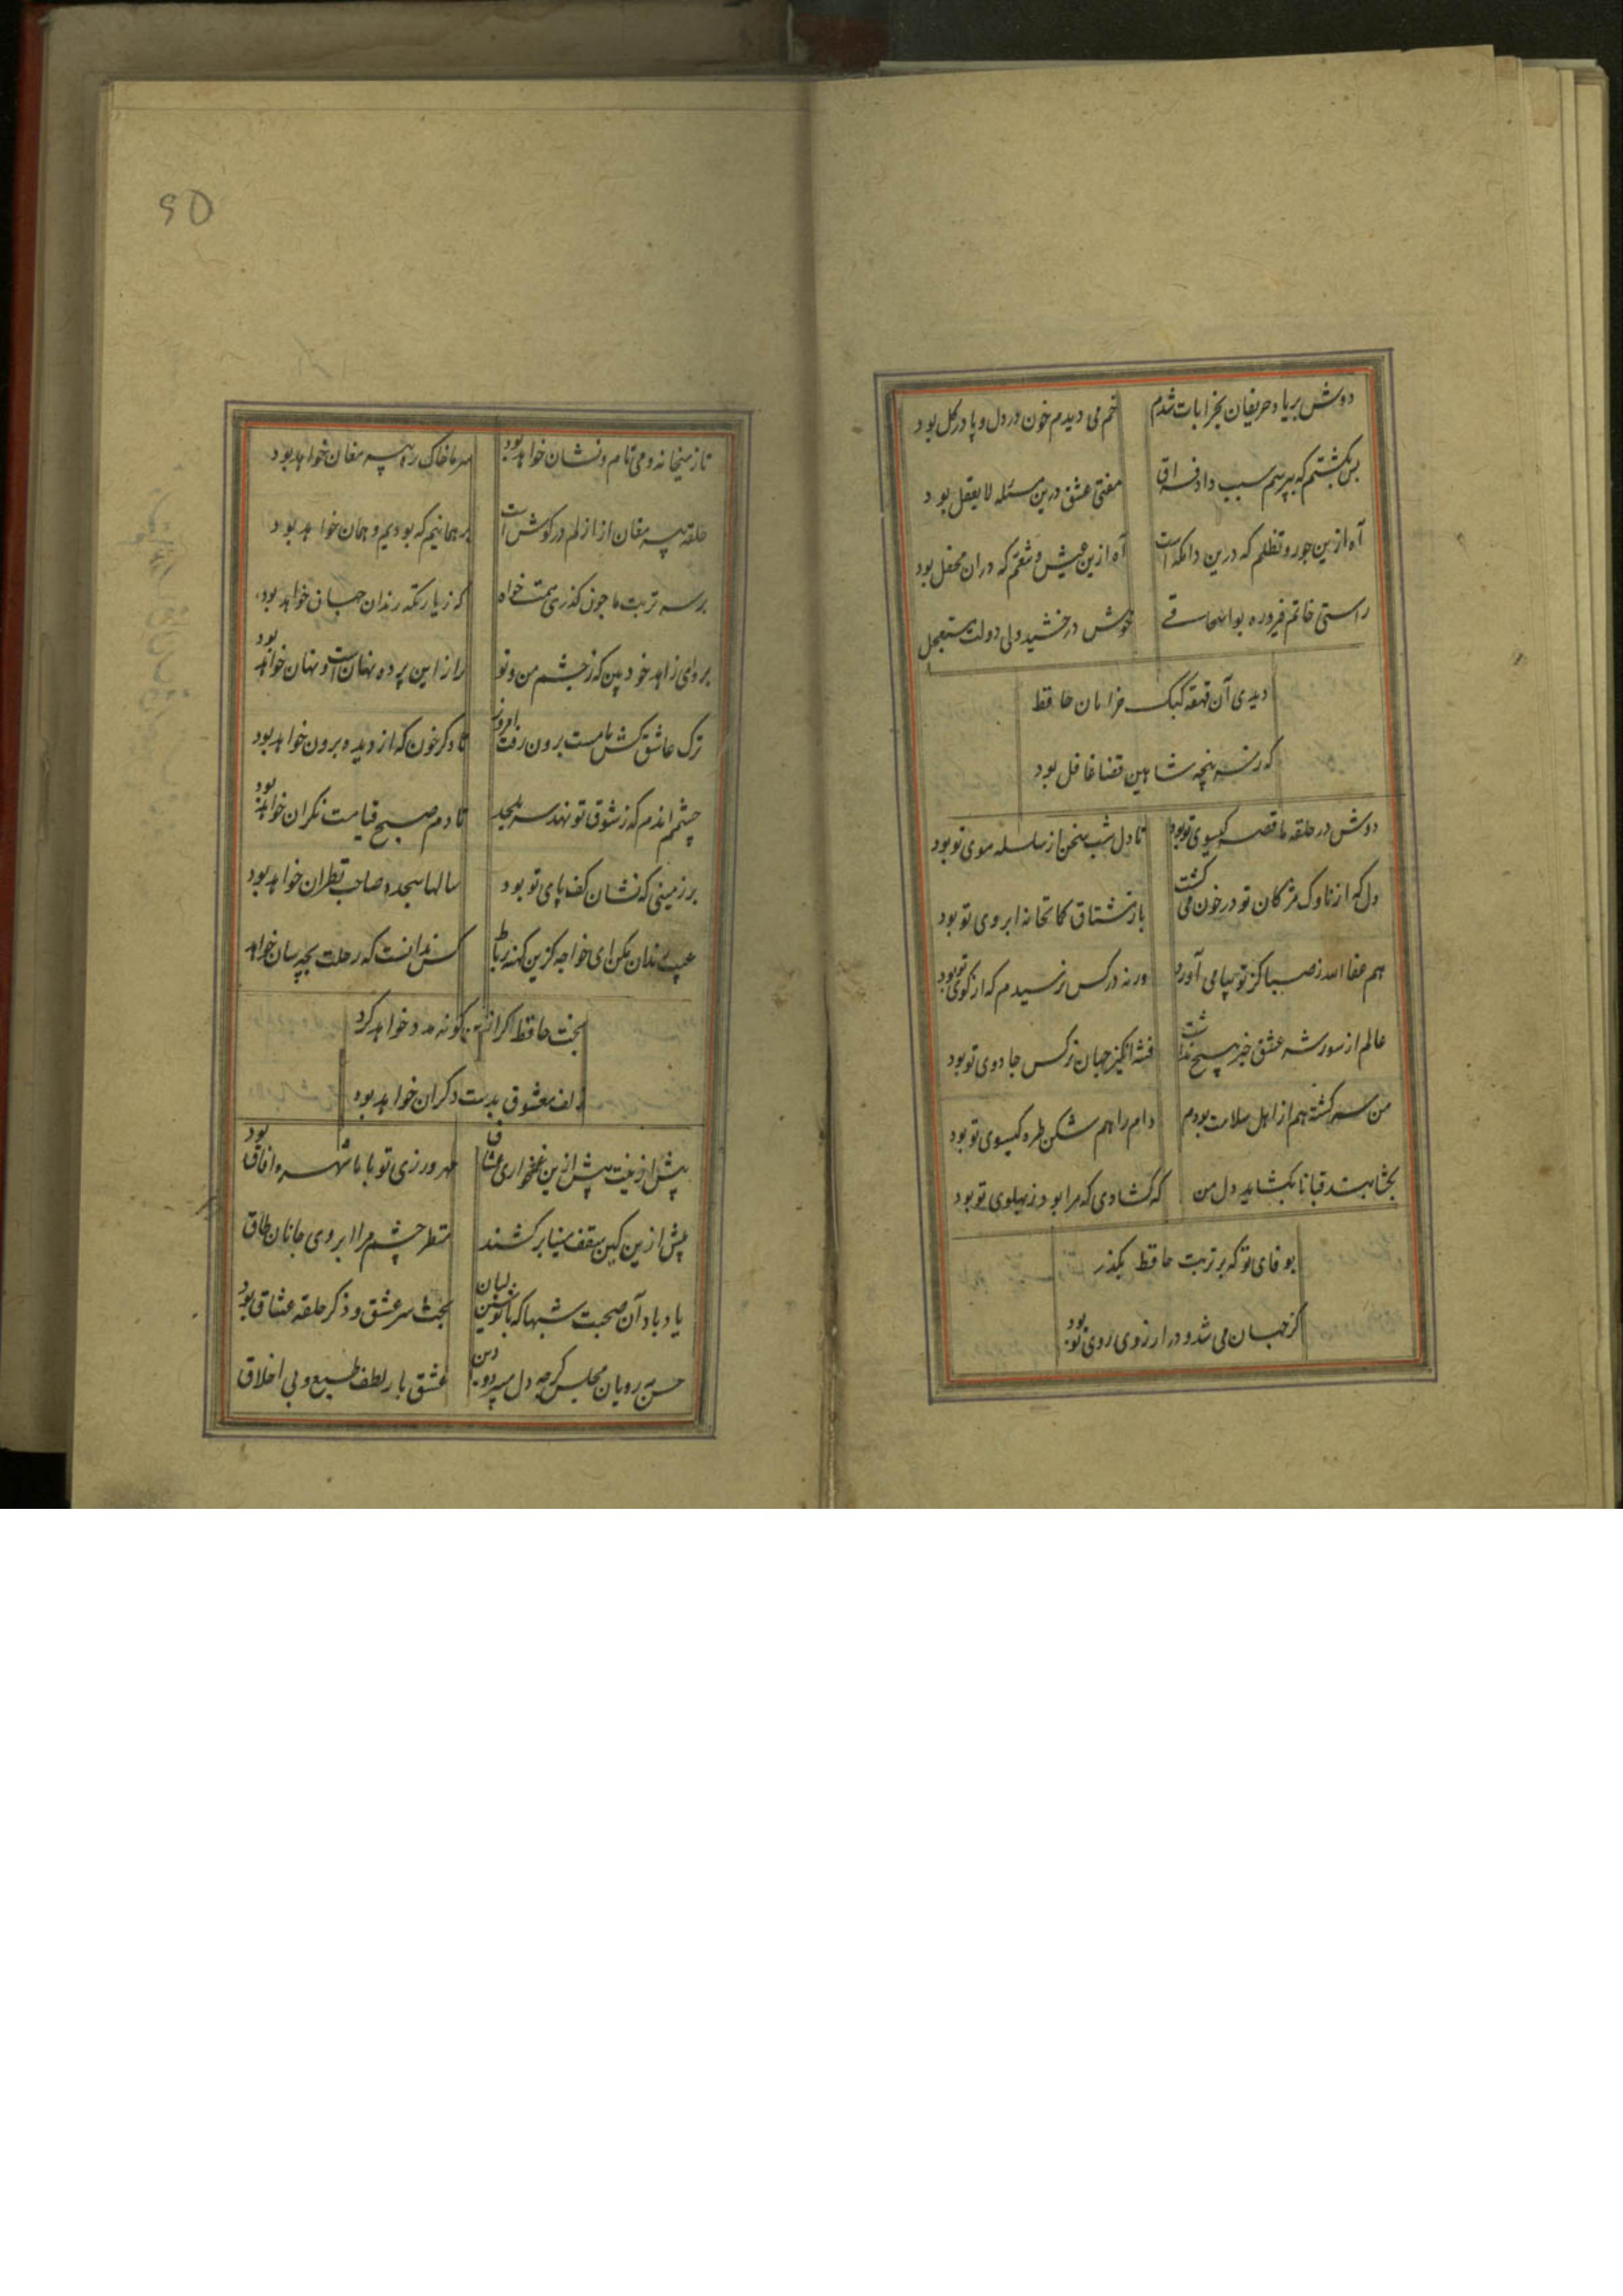 دوش بر یاد حریفان بخرابات شدم خم می دیدم خون در دل و پا در گل بود
بس بکشتم که بپرسم سبب داد فراق مفتی عشق درین مسئله لا یعقل بود
آه ازین جور و تظلم که درین دامگه است آه ازین عیش و تنعم که دران محفل بود
راستی خاتم فیروزه بواسحاقی خوش درخشید ولی دولت مستعجل
دیدی آن قهقهه کبک خرامان حافظ
که ز سر پنجه شاهین قضا غافل بود
دوش در حلقه ما قصه کیسوی تو بود تا دل شب سخن از سلسله موی تو بود
دل که از ناوک مژکان تو در خون می کشت باز مشتاق کمانخانه ابروی تو بود
هم عفا الله ز صبا کز تو پیامی آورد ورنه در کس نرسیدم که از کوی تو بود
عالم از شور و شر عشق خبر هیچ نداشت فتنه انکیز جهان نرکس جادوی تو بود
من سرکشته هم از اهل سلامت بودم دام راهم شکن طره کیسوی تو بود
بکشا بند قبا تا بکشاید دل من که کشادی که مرا بود ز پهلوی تو بود
بوفای تو که بر تربت حافظ بکذر
کز جهان می شد و در ارزوی روی تو بود
۹۵
تا ز میخانه و می نام و نشان خواهد بود سر ما خاک ره پیر مغان خواهد بود
حلقه پیر مغان از ازلم در کوش است بر همانیم که بودیم و همان خواهد بود
بر سر تربت ما چون کذری همت خواه که زیارتکه رندان جهان خواهد بود
برو ای زاهد خودبین که ز چشم من و تو راز این پرده نهان است و نهان خواهد بود
ترک عاشق کش ما مست برون رفت امروز تا دکر خون که از دیده برون خواهد بود
چشمم اندم که ز شوق تو نهد سر بلحد تا دم صبح قیامت نکران خواهد بود
بر زمینی که نشان کف پای تو بود سالها سجده صاحب نظران خواهد بود
عیب رندان مکن ای خواجه کزین کهنه رباط کس ندانست که رحلت بچه سان خواهد
بخت حافظ اکر ازین کونه مدد خواهد کرد
زلف معشوق بدست دکران خواهد بود
پیش ازینت بیش ازین غمخواری عشاق بود مهرورزی تو با ما شهره افاق
پیش ازین کین سقف مینا برکشند منظر چشم مرا ابروی جانان طاق
یاد باد آن صحبت شبها که با نوشین لبان بحث سر عشق و ذکر حلقه عشاق بود
حسن مه رویان مجلس کرچه دل میبرد و دین عشق ما بر لطف طبع و بی اخلاق